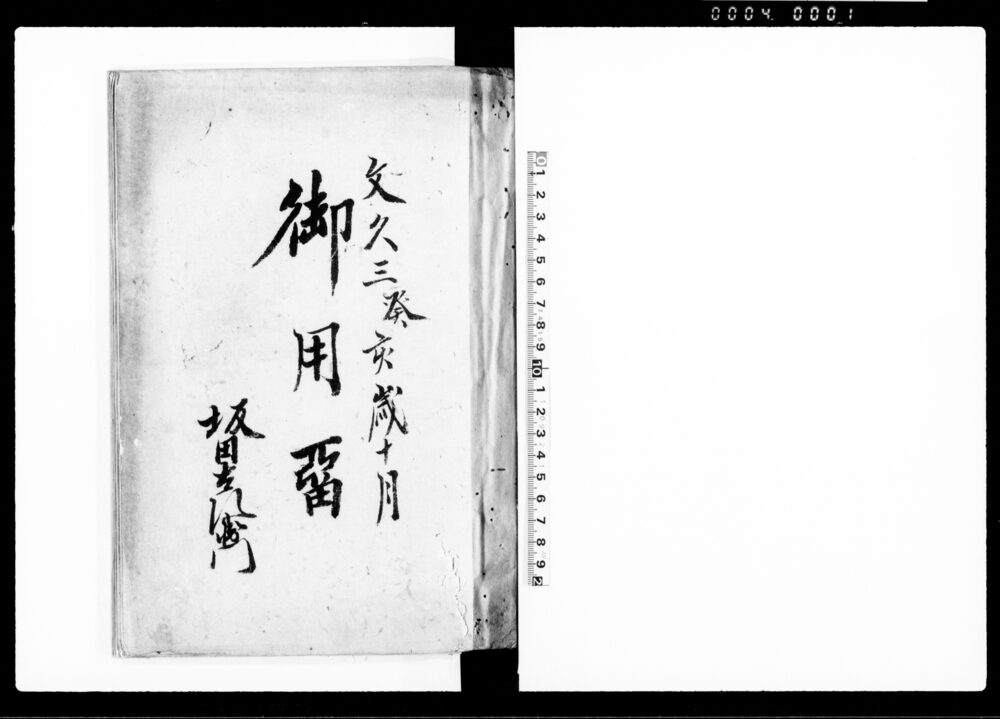 0004 0001
文久三癸亥歳十月
御用留
坂田
0 1 2 3 4 5 6 7 8 9 10 1 2 3 4 5 6 7 8 9 2